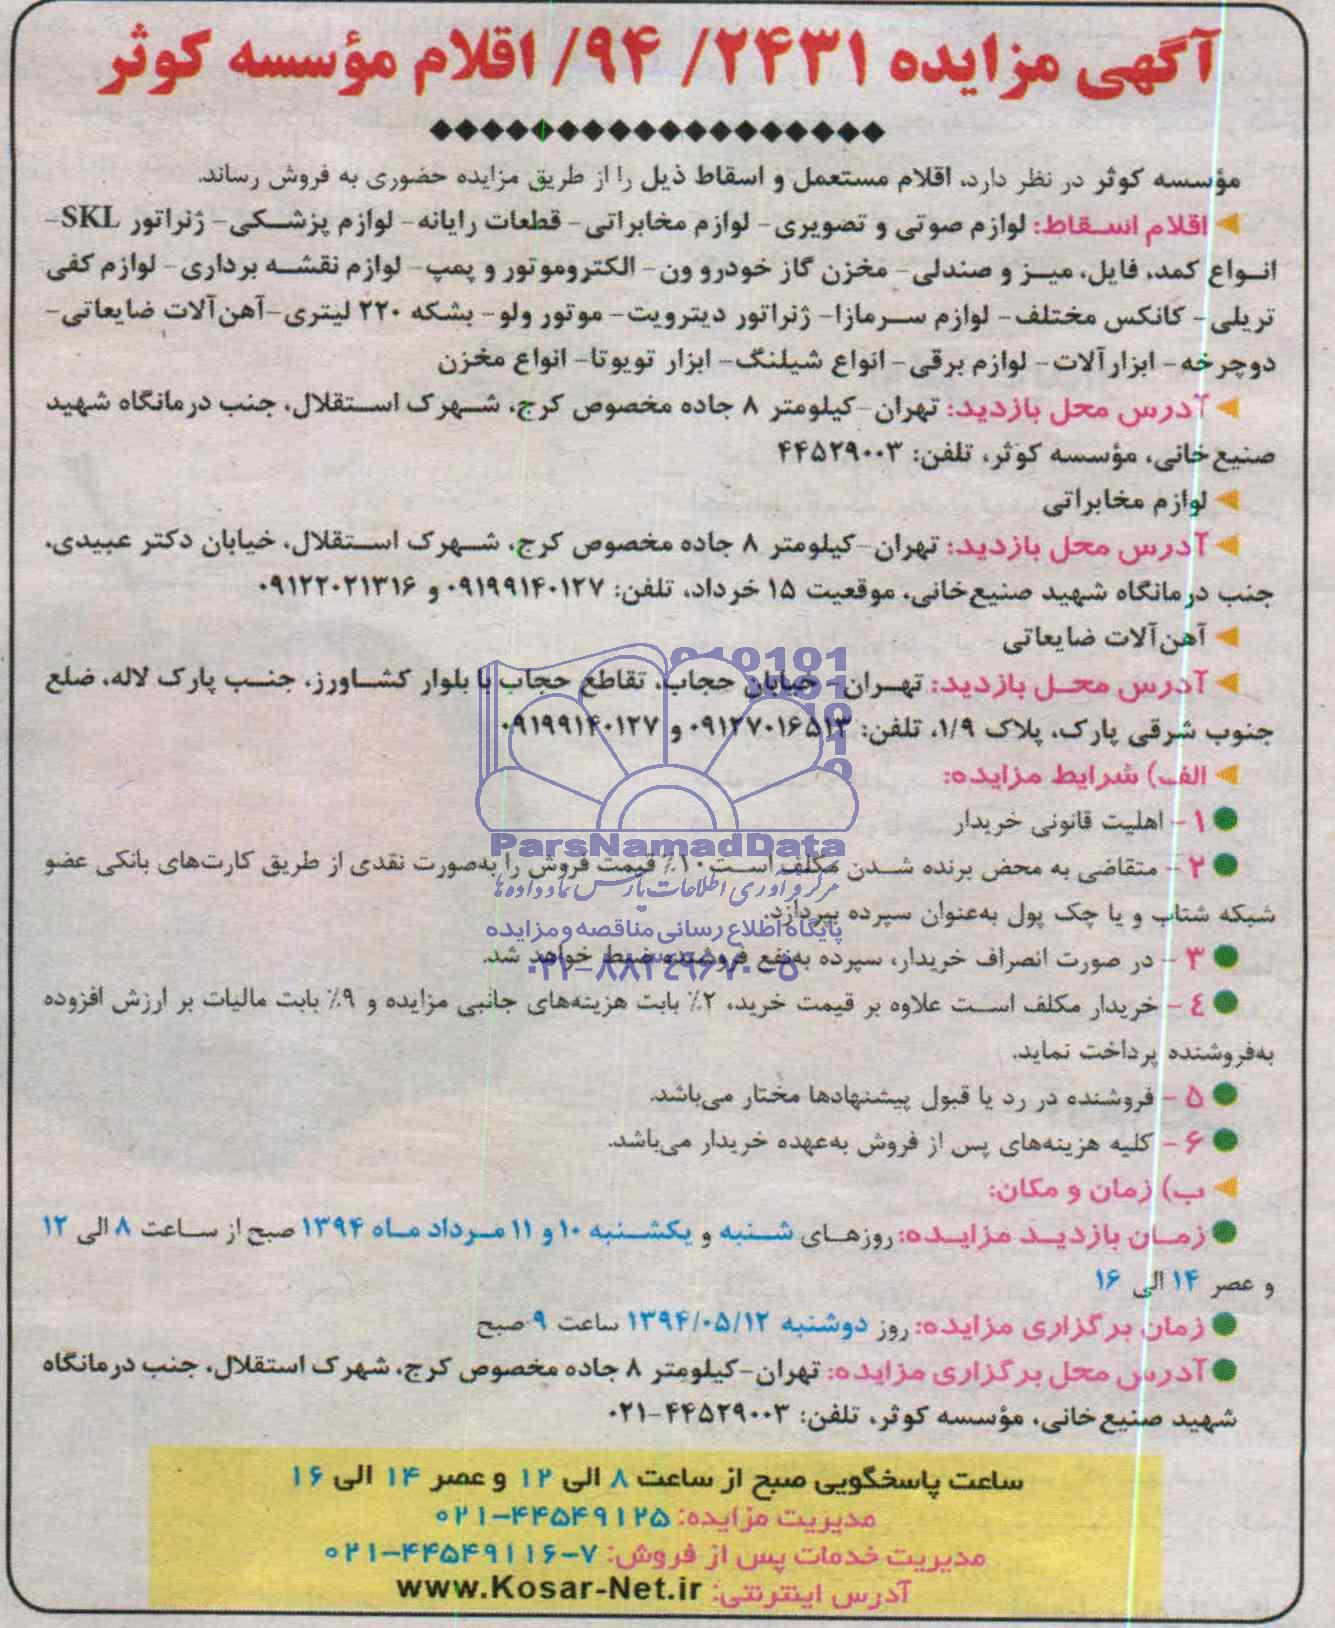 آگهی مزایده ۲۴۳۱/ ۹۴/ اقلام مؤسسه کوثر
مؤسسه کوثر در نظر دارد، اقلام مستعمل و اسقاط ذیل را از طریق مزایده حضوری به فروش رساند.
اقلام اسقاط: لوازم صوتی و تصویری- لوازم مخابراتی- قطعات رایانه- لوازم پزشکی- ژنراتور SKL-
انواع کمد، فایل، میز و صندلی- مخزن گاز خودرو ون- الکتروموتور و پمپ- لوازم نقشه برداری- لوازم کفی
تریلی- کانکس مختلف- لوازم سرمازا- ژنراتور دیترویت- موتور ولو- بشکه ۲۲۰ لیتری-آهن‌آلات ضایعاتی-
دوچرخه- ابزارآلات- لوازم برقی- انواع شیلنگ- ابزار تویوتا- انواع مخزن
آدرس محل بازدید: تهران-کیلومتر ۸ جاده مخصوص کرج، شهرک استقلال، جنب درمانگاه شهید
صنیع‌خانی، مؤسسه کوثر، تلفن: ۴۴۵۲۹۰۰۳
لوازم مخابراتی
آدرس محل بازدید: تهران-کیلومتر ۸ جاده مخصوص کرج، شهرک استقلال، خیابان دکتر عبیدی،
جنب درمانگاه شهید صنیع‌خانی، موقعیت ۱۵ خرداد، تلفن: ۰۹۱۹۹۱۴۰۱۲۷ و ۰۹۱۲۲۰۲۱۳۱۶
آهن‌آلات ضایعاتی
آدرس محل بازدید: تهران- خیابان حجاب، تقاطع حجاب با بلوار کشاورز، جنب پارک لاله، ضلع
جنوب شرقی پارک، پلاک ۱/۹، تلفن: ۰۹۱۲۷۰۱۶۵۱۳ و ۰۹۱۹۹۱۴۰۱۲۷
الف) شرایط مزایده:
۱- اهلیت قانونی خریدار
ParsNamadData
۲- متقاضی به محض برنده شدن مکلف است ۱۰٪ قیمت فروش را به‌صورت نقدی از طریق کارت‌های بانکی عضو
مرکز فرآوری اطلاعات پارس نماد داده‌ها
شبکه شتاب و یا چک پول به‌عنوان سپرده بپردازد.
پایگاه اطلاع رسانی مناقصه و مزایده
۳- در صورت انصراف خریدار، سپرده به‌نفع فروشنده ضبط خواهد شد.
۰۲۱-۸۸۳۴۹۶۷۰-۵
۴- خریدار مکلف است علاوه بر قیمت خرید، ۲٪ بابت هزینه‌های جانبی مزایده و ۹٪ بابت مالیات بر ارزش افزوده
به‌فروشنده پرداخت نماید.
۵- فروشنده در رد یا قبول پیشنهادها مختار می‌باشد.
۶- کلیه هزینه‌های پس از فروش به‌عهده خریدار می‌باشد.
ب) زمان و مکان:
زمان بازدید مزایده: روزهای شنبه و یکشنبه ۱۰ و ۱۱ مرداد ماه ۱۳۹۴ صبح از ساعت ۸ الی ۱۲
و عصر ۱۴ الی ۱۶
زمان برگزاری مزایده: روز دوشنبه ۱۳۹۴/۰۵/۱۲ ساعت ۹ صبح
آدرس محل برگزاری مزایده: تهران-کیلومتر ۸ جاده مخصوص کرج، شهرک استقلال، جنب درمانگاه
شهید صنیع‌خانی، مؤسسه کوثر، تلفن: ۴۴۵۲۹۰۰۳-۰۲۱
ساعت پاسخگویی صبح از ساعت ۸ الی ۱۲ و عصر ۱۴ الی ۱۶
مدیریت مزایده: ۴۴۵۴۹۱۲۵-۰۲۱
مدیریت خدمات پس از فروش: ۷-۴۴۵۴۹۱۱۶-۰۲۱
آدرس اینترنتی: www.Kosar-Net.ir